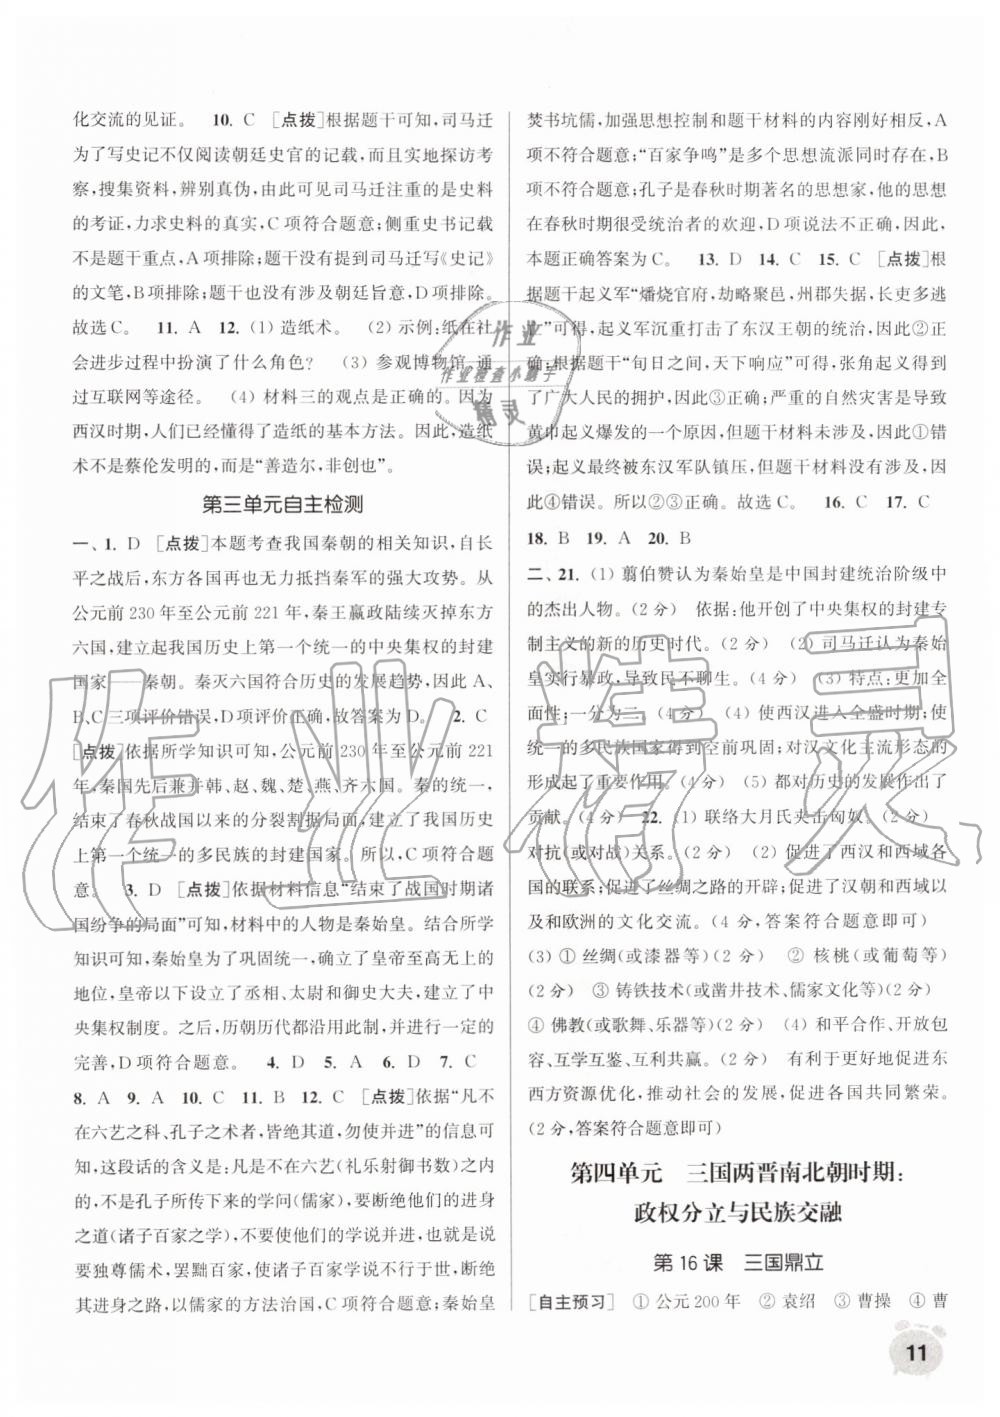 化交流的见证。 10. C [点拨]根据题干可知,司马迁
为了写史记不仅阅读朝廷史官的记载,而且实地探访考
察,搜集资料,辨别真伪,由此可见司马迁注重的是史料
的考证,力求史料的真实,C 项符合题意;侧重史书记载
不是题干重点,A 项排除;题干没有提到司马迁写《史记》
的文笔,B 项排除;题干也没有涉及朝廷旨意,D 项排除。
故选 C。 11. A 12. (1) 造纸术。 (2) 示例:纸在社
会进步过程中扮演了什么角色? (3) 参观博物馆、通
过互联网等途径。 (4) 材料三的观点是正确的。因为
西汉时期,人们已经懂得了造纸的基本方法。因此,造纸
术不是蔡伦发明的,而是“善造尔,非创也”。
第三单元自主检测
一、1. D [点拨]本题考查我国秦朝的相关知识,自长
平之战后,东方各国再也无力抵挡秦军的强大攻势。从
公元前 230 年至公元前 221 年,秦王嬴政陆续灭掉东方
六国,建立起我国历史上第一个统一的中央集权的封建
国家——秦朝。秦灭六国符合历史的发展趋势,因此 A、
B、C 三项评价错误,D 项评价正确,故答案为 D。 2. C
[点拨]依据所学知识可知,公元前 230 年至公元前 221
年,秦国先后兼并韩、赵、魏、楚、燕、齐六国。秦的统一,
结束了春秋战国以来的分裂割据局面,建立了我国历史
上第一个统一的多民族的封建国家。所以,C 项符合题
意。 3. D [点拨]依据材料信息“结束了战国时期诸
国纷争的局面”可知,材料中的人物是秦始皇。结合所学
知识可知,秦始皇为了巩固统一,确立了皇帝至高无上的
地位,皇帝以下设立了丞相、太尉和御史大夫,建立了中
央集权制度。之后,历朝历代都沿用此制,并进行一定的
完善,D 项符合题意。 4. D 5. A 6. D 7. C
8. A 9. A 10. C 11. B 12. C [点拨]依据“凡不
在六艺之科、孔子之术者,皆绝其道,勿使并进”的信息可
知,董仲舒认为,凡是不在六艺(礼乐射御书数)之内的、
不是孔子所传下来的学问(儒家),要断绝他们的进身
之道(诸子百家之学),不要让他们与儒家一起进步,即
要独尊儒术,罢黜百家,使儒家高于诸子百家,断绝
其进身之路,以儒家的方法治国,C 项符合题意;秦始皇
焚书坑儒,加强思想控制和题干材料的内容刚好相反,A
项不符合题意;“百家争鸣”是多个思想流派同时发展,B
项不符合题意;孔子是春秋时期著名的思想家,他的思想
在春秋时期很受统治者的欢迎,D 项说法不正确。因此,
本题正确答案为 C。 13. D 14. C 15. C [点拨]根
据题干起义军“燔烧官府,劫略聚邑,州郡失据,长吏多逃
亡”可得,起义军沉重打击了东汉王朝的统治,因此②正
确;根据题干“旬日之间,天下响应”可得,张角起义得到
了广大人民的拥护,因此③正确;严重的自然灾害是导致
黄巾起义爆发的一个原因,但题干材料未涉及,因此①错
误;起义最终被东汉军队镇压,但题干材料没有涉及,因
此④错误。所以②③正确。故选 C。 16. C 17. C
18. B 19. A 20. B
二、21. (1) 翦伯赞认为秦始皇是中国封建统治阶级中
的杰出人物。(2 分) 依据:他开创了中央集权的封建专
制主义的新的历史时代。(2 分) (2) 司马迁认为秦始
皇实行暴政,导致民不聊生。(4 分) (3) 特点:更加全
面性;一分为二。(4 分) (4) 使西汉进入全盛时期;使
统一的多民族国家得到空前巩固;对汉文化主流形态的
形成起了重要作用。(4 分) (5) 都对历史的发展作出了
贡献。(4 分) 22. (1) 联络大月氏夹击匈奴。(2 分)
对抗(或对战)关系。(2 分) (2) 促进了西汉和西域各
国的联系;促进了丝绸之路的开辟;促进了汉朝和西域以
及和欧洲的文化交流。(4 分,答案符合题意即可)
(3) ① 丝绸(或漆器等)(2 分) ② 核桃(或葡萄等)
(2 分) ③ 铸铁技术(或凿井技术、儒家文化等)(2 分)
④ 佛教(或歌舞、乐器等)(2 分) (4) 和平合作、开放包
容、互学互鉴、互利共赢。(2 分) 有利于更好地促进东
西方资源优化,推动社会的发展,促进各国共同繁荣。
(2 分,答案符合题意即可)
第四单元 三国两晋南北朝时期:
政权分立与民族交融
第 16 课 三国鼎立
[自主预习] ① 公元 200 年 ② 袁绍 ③ 曹操 ④ 曹
11
作业
作业检查小助手
精灵
作业精灵